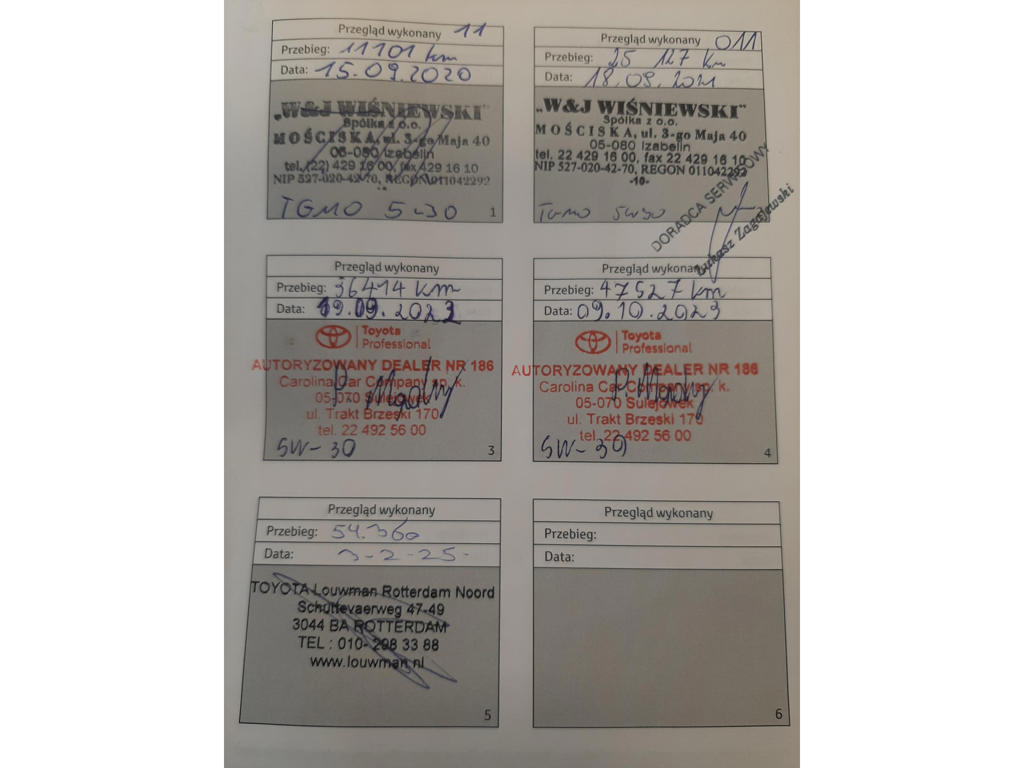 Przegląd wykonany 11
Przebieg: 11101 km
Data: 15.09.2020
„W&J WIŚNIEWSKI"
Spółka z o.o.
MOŚCISKA, ul. 3-go Maja 40
05-080 Izabelin
tel. (22) 429 16 00, fax 429 16 10
NIP 527-020-42-70, REGON 011042292
TGMO 5W30
1
Przegląd wykonany 011
Przebieg: 25 127 km
Data: 18.09.2021
„W&J WIŚNIEWSKI"
Spółka z o.o.
MOŚCISKA, ul. 3-go Maja 40
05-080 Izabelin
tel. 22 429 16 00, fax 22 429 16 10
NIP 527-020-42-70, REGON 011042292
-10-
DORADCA SERWISOWY
Łukasz Zagajewski
TGMO 5W30
Przegląd wykonany
Przebieg: 36414 km
Data: 09.2023
Toyota
Professional
AUTORYZOWANY DEALER NR 186
Carolina Car Company sp. k.
05-070 Sulejówek
ul. Trakt Brzeski 170
tel. 22 492 56 00
5W-30
3
Przegląd wykonany
Przebieg: 47527 km
Data: 09.10.2023
Toyota
Professional
AUTORYZOWANY DEALER NR 186
Carolina Car Company sp. k.
05-070 Sulejówek
ul. Trakt Brzeski 170
tel. 22 492 56 00
5W-30
4
Przegląd wykonany
Przebieg: 54.360
Data: 3-2-25-
TOYOTA Louwman Rotterdam Noord
Schuttevaerweg 47-49
3044 BA ROTTERDAM
TEL : 010- 298 33 88
www.louwman.nl
5
Przegląd wykonany
Przebieg:
Data:
6